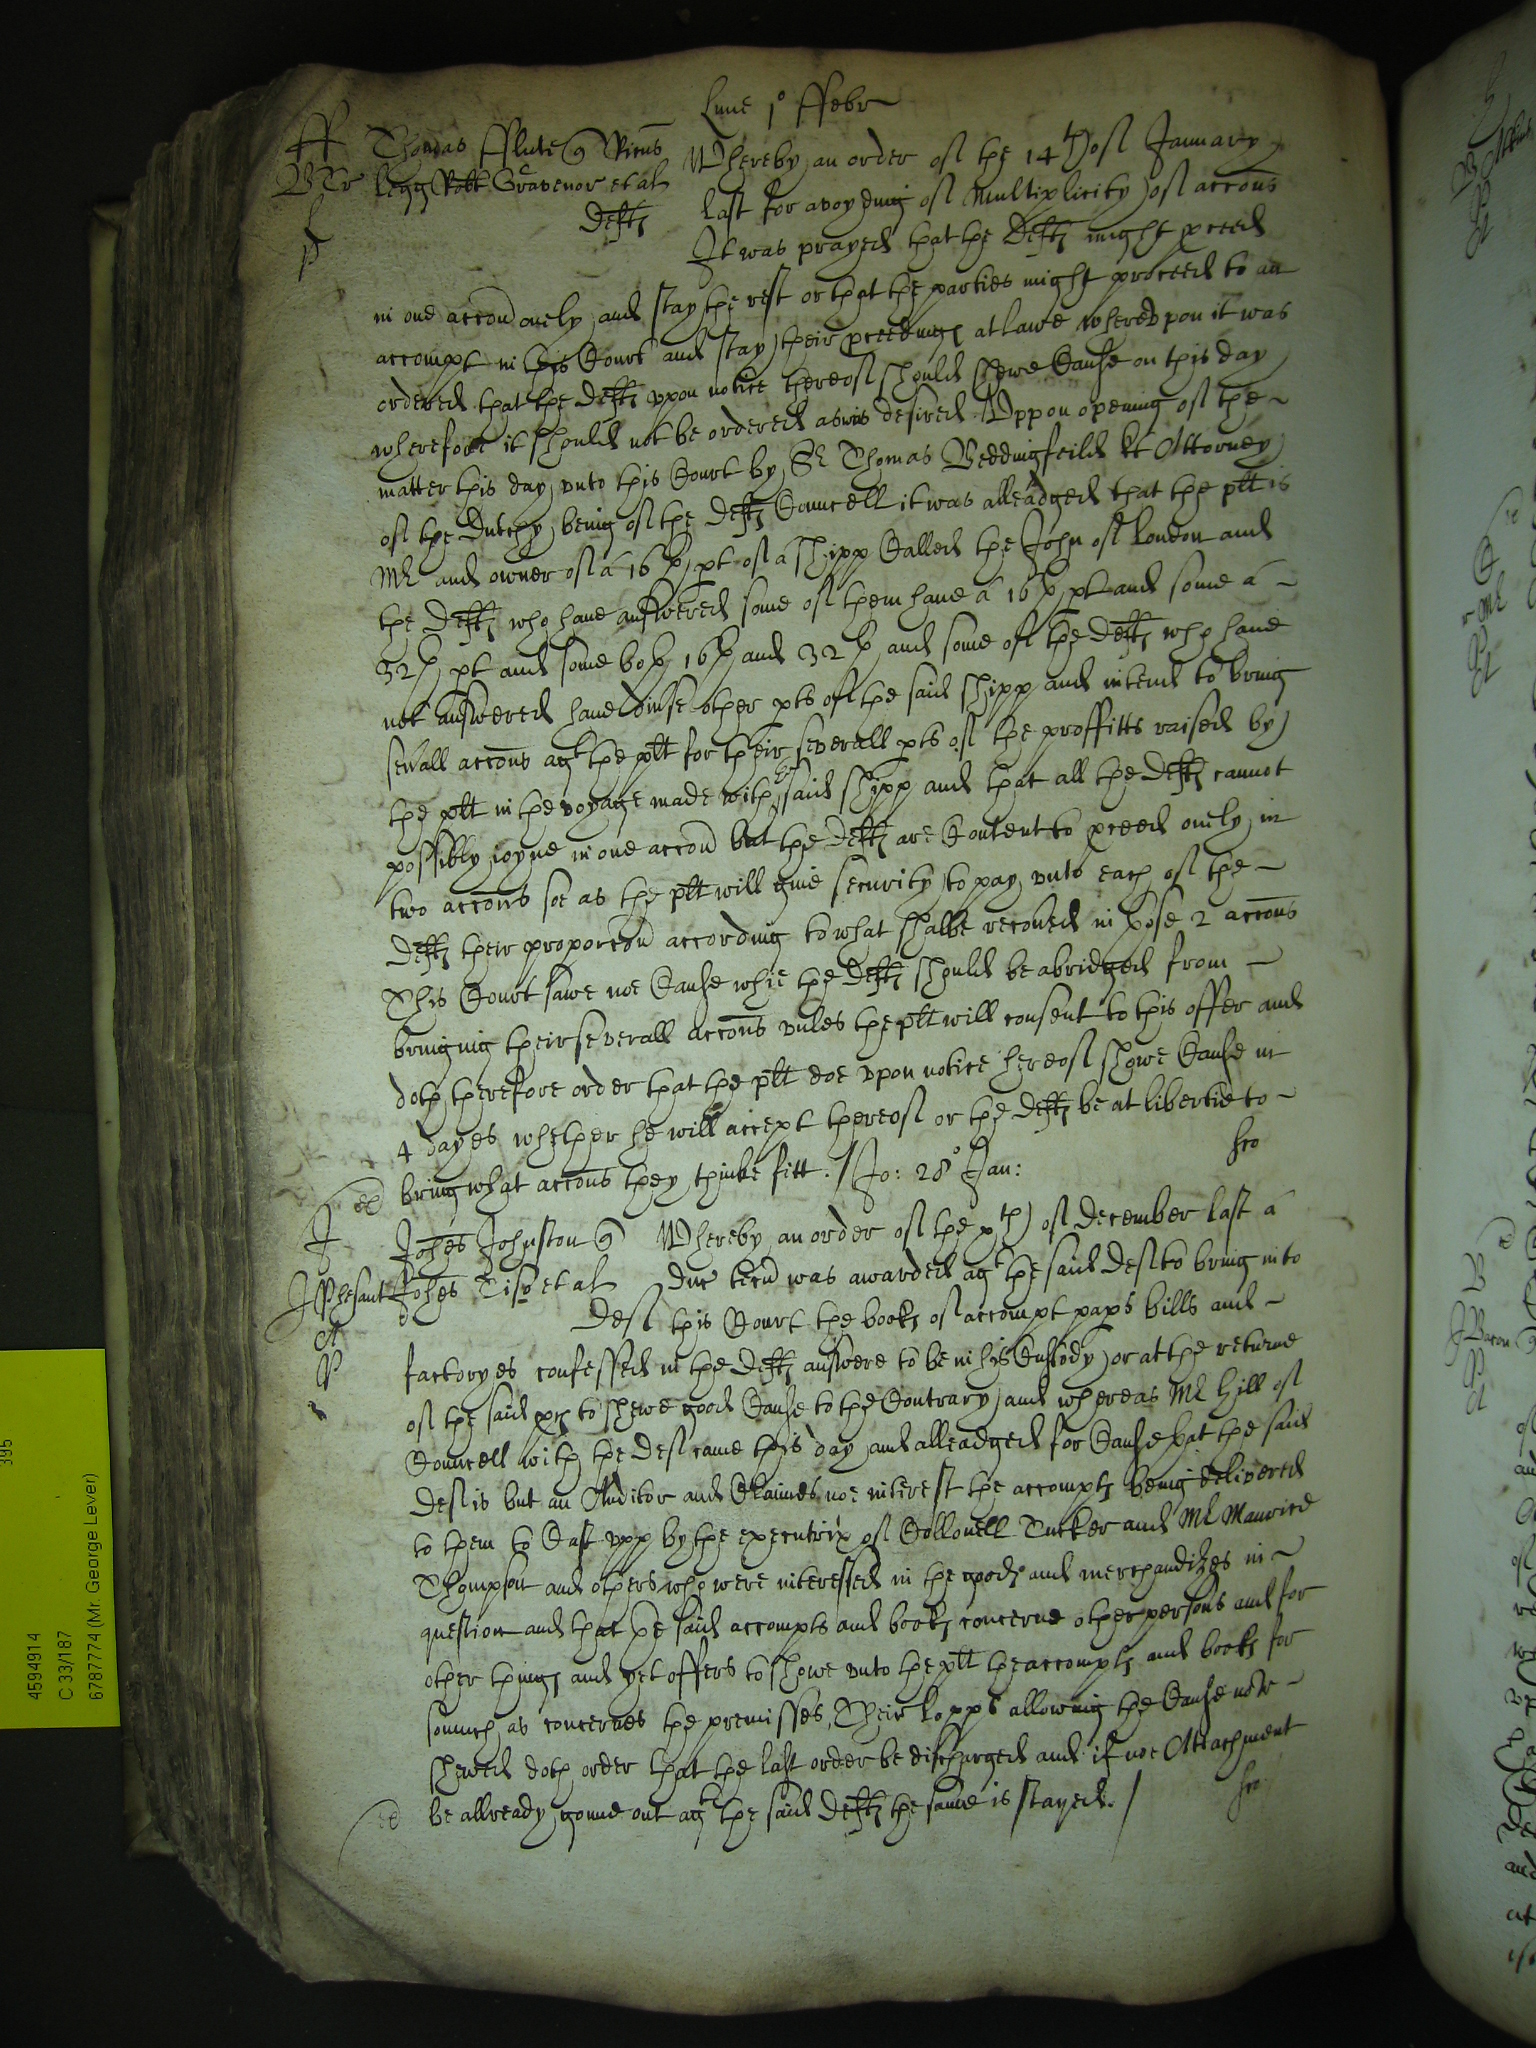 Lune 1° ffebr
ff Thomas fflute q̃ Ricũs Whereby an order of the 14th of January
BTr Legg Robt Gravenor et al last for avoyding of Multiplicity of accõns
Defts It was prayed that the Defts might pceed
p
in one accõn onely and stay the rest or that the parties might proceed to an
accompt in this Court and stay their pceedings at lawe whereupon it was
ordered that the Defts upon notice thereof should shewe Cause on this day
wherefore it should not be ordered as was desired Uppon opening of the
matter this day unto this Court by Sr Thomas Beddingfeild kt Attorney
of the Dutchy being of the Defts Councell it was alleadged that the plt is
Mr and owner of a 16th pt of a shipp Called the John of London and
the Defts who have answered some of them have a 16th pt and some a
32th pt and some both 16th and 32th and some of the Defts who have
not answered have divse other pts of the said shipp and intend to bring
sevall accõns agt the plt for their severall pts of the proffitts raised by
the plt in the voyage made with the said shipp and that all the Defts cannot
possibly ioyne in one accõn but the Defts are Content to pceed onely in
two accõns soe as the plt will give security to pay unto each of the
Defts their proporcõn according to what shalbe recoûed in those 2 accõns
This Court sawe noe Cause whie the Defts should be abridged from
bringing their severall accõns unles the plt will consent to this offer and
doth therefore order that the plt doe upon notice hereof shewe Cause in
4 dayes whether he will accept thereof or the Defts be at libertie to
bring what accõns they thinke fitt ./ Jo: 28° Jan:
J Johẽs Johnston q̃ Whereby an order of the xth of December last a
J Phesant Johẽs Tiso et al Duc tecũ was awarded agt the said Def to bring into
A Def this Court the books of accompt paps bills and
P factoryes confessed in the Defts answere to be in his Custody or at the returne
of the said prs to shewe good Cause to the Contrary and whereas Mr Hill of
Councell with the Def came this day and alleadged for Cause that the said
Def is but an Auditor and Claimes noe interest the accompts being delivered
to them to Cast upp by the executrix of Collonell Tucker and Mr Maurice
Thompson and others who were interessed in the goods and merchandizes in
question and that the said accompts and books concerne other persons and for
other things and yet offers to shewe unto the plt the accompts and books for
somuch as concernes the premisses, Their Lopps allowing the Cause nowe
shewed doth order that the last order be discharged and if noe Attachment
be allready gonne out agt the said Defts the same is stayed./
4594914
C 33/187
6787774 (Mr. George Lever)
395